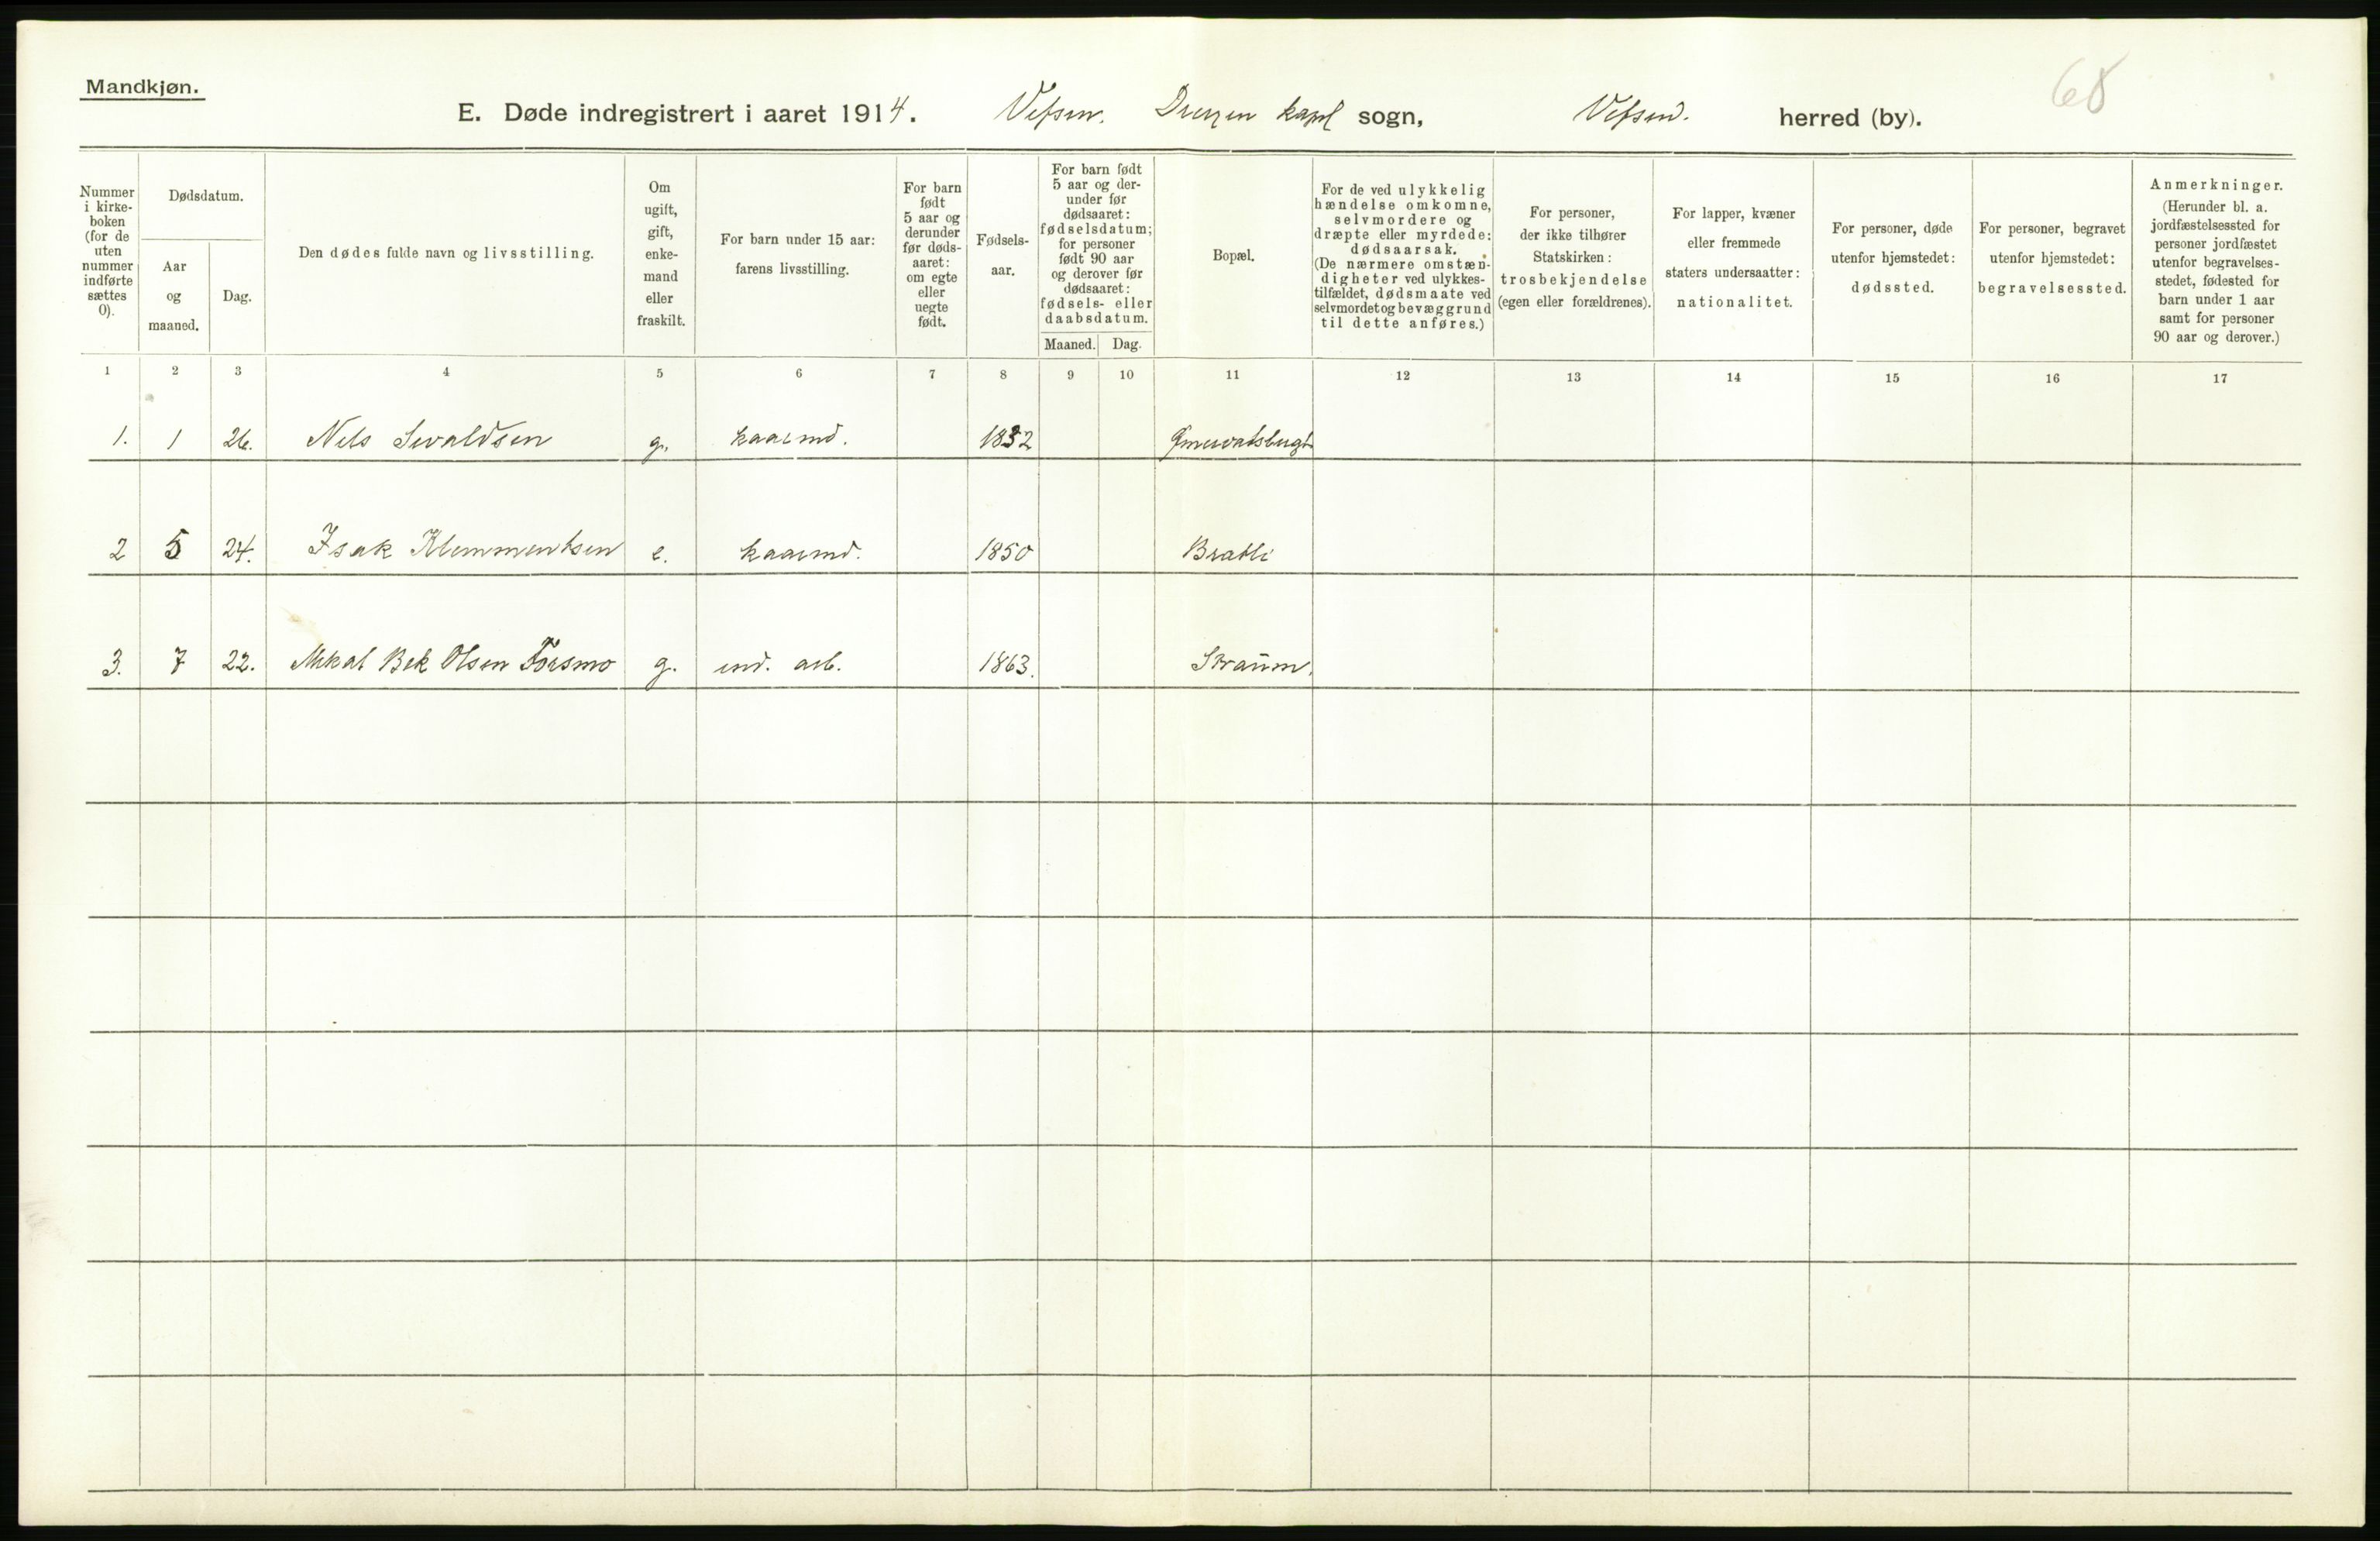 Mandkjøn.
68
E. Døde indregistrert i aaret 1914. Vefsen. kapel sogn, Vefsend. herred (by).
Nummer
i kirke-
boken
(for de
uten
nummer
indførte
sættes
0).
Dødsdatum.
Aar
og
maaned.
Dag.
Den dødes fulde navn og livsstilling.
Om
ugift,
gift,
enke-
mand
eller
fraskilt.
For barn under 15 aar:
farens livsstilling.
For barn
født
5 aar og
derunder
før døds-
aaret:
om egte
eller
uegte
født.
Fødsels-
aar.
For barn født
5 aar og der-
under før
dødsaaret:
fødselsdatum;
for personer
født 90 aar
og derover før
dødsaaret:
fødsels- eller
daabsdatum.
Maaned. Dag.
Bopæl.
For de ved ulykkelig
hændelse omkomne,
selvmordere og
dræpte eller myrdede:
dødsaarsak.
(De nærmere omstæn-
digheter ved ulykkes-
tilfældet, dødsmaate ved
selvmordet og bevæggrund
til dette anføres.)
For personer,
der ikke tilhører
Statskirken:
trosbekjendelse
(egen eller forældrenes).
For lapper, kvæner
eller fremmede
staters undersaatter:
nationalitet.
For personer, døde
utenfor hjemstedet:
dødssted.
For personer, begravet
utenfor hjemstedet:
begravelsessted.
Anmerkninger.
(Herunder bl. a.
jordfæstelsessted for
personer jordfæstet
utenfor begravelses-
stedet, fødested for
barn under 1 aar
samt for personer
90 aar og derover.)
1 2 3 4 5 6 7 8 9 10 11 12 13 14 15 16 17
1. 1 26. Nils Sivaldsen g. kaarmd. 1832
2 5 24. Isak Klemmentsen e. kaarmd. 1850 Bratli
3. 7 22. Mikal Bek Olsen Forsmo g. ind. arb. 1863. Straum.